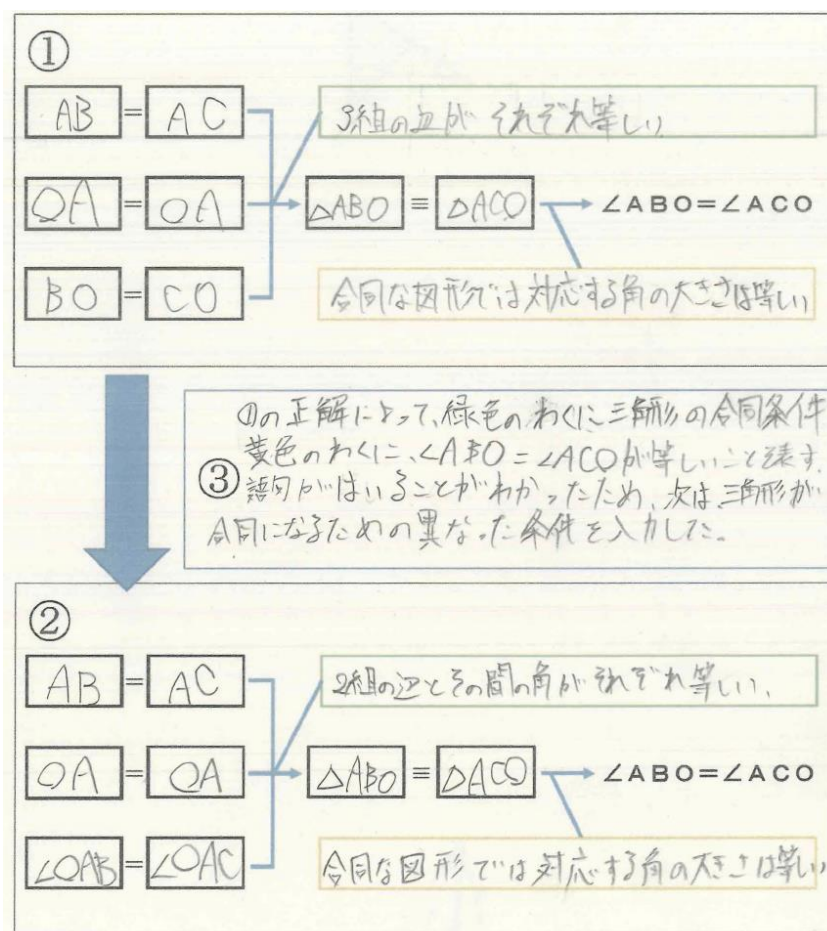 ①
AB = AC
3組の辺が それぞれ等しい
OA = OA
△ABO ≡ △ACO
∠ABO=∠ACO
BO = CO
合同な図形では対応する角の大きさは等しい
①の正解によって、緑色のわくに三角形の合同条件
黄色のわくに、∠ABO=∠ACOが等しいこと表す。
③ 語句がはいることがわかったため、次は、三角形が
合同になるための異なった条件を入力した。
②
AB = AC
2組の辺とその間の角がそれぞれ等しい、
OA = OA
△ABO ≡ △ACO
∠ABO=∠ACO
∠OAB = ∠OAC
合同な図形では対応する角の大きさは等しい